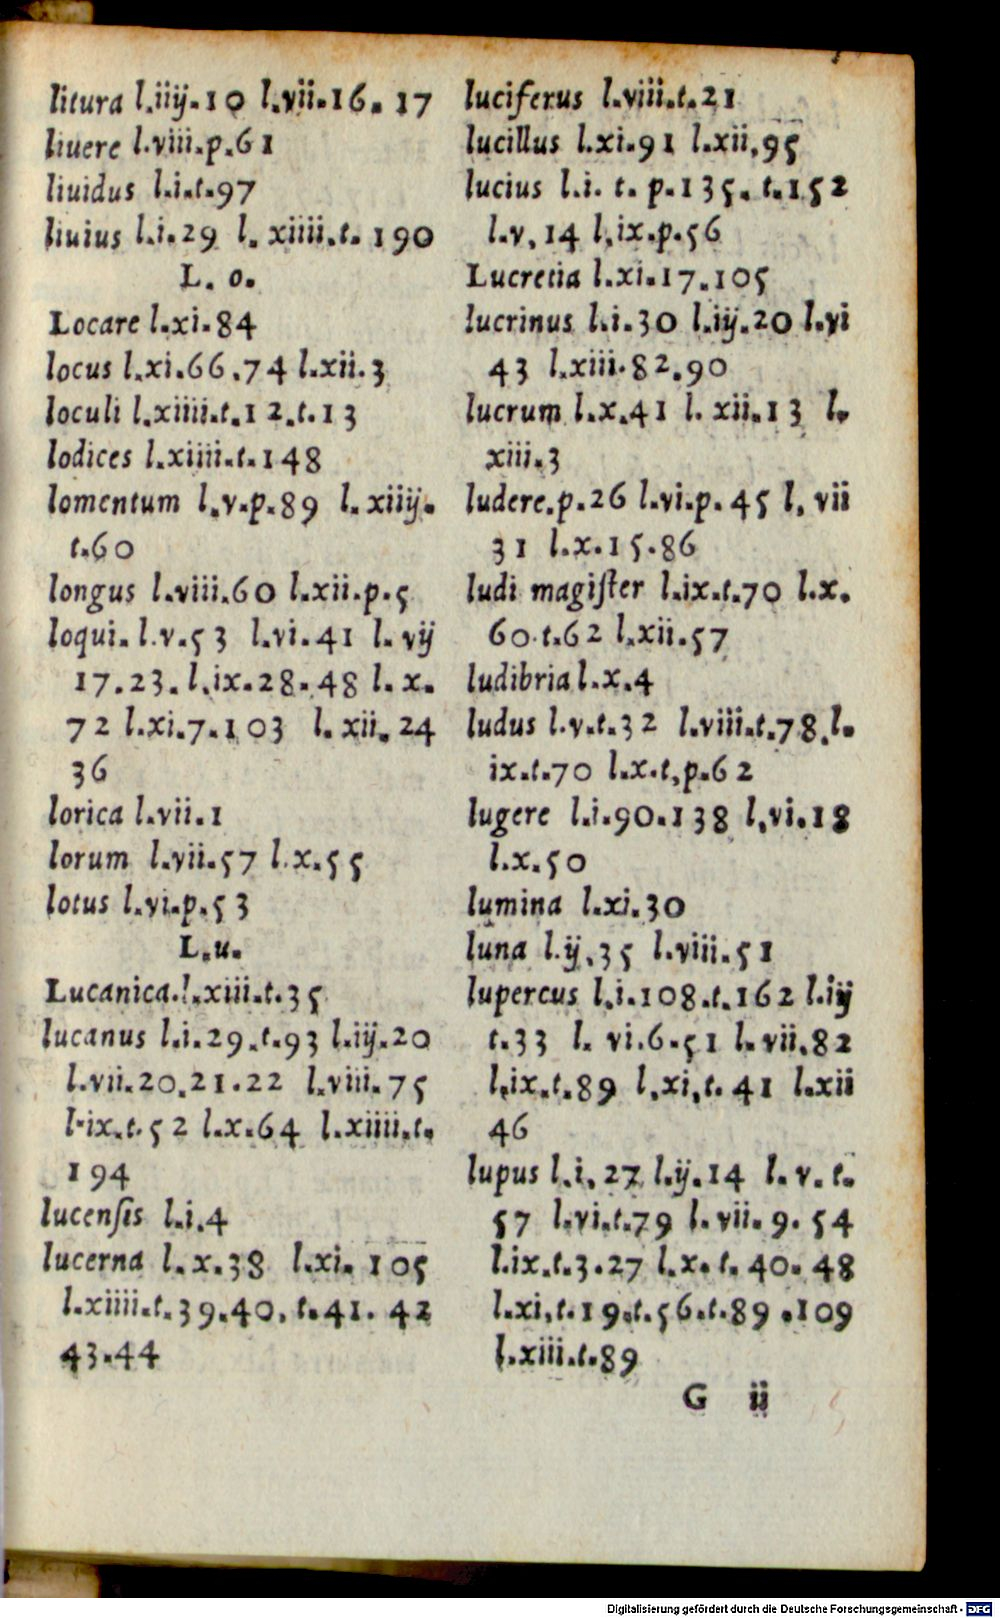 litura l.iiij.10 l.vii.16. 17
liuere l.viii.p.61
liuidus l.i.t.97
liuius l.i.29 l. xiiii.t. 190
L. o.
Locare l.xi.84
locus l.xi.66.74 l.xii.3
loculi l.xiiii.t.12.t.13
lodices l.xiiii.t.148
lomentum l.v.p.89 l.xiiij.
t.60
longus l.viii.60 l.xii.p.5
loqui. l.v.53 l.vi.41 l. vij
17.23. l.ix.28.48 l. x.
72 l.xi.7.103 l. xii. 24
36
lorica l.vii.1
lorum l.vii.57 l.x.55
lotus l.vi.p.53
L.u.
Lucanica.l.xiii.t.35
lucanus l.i.29.t.93 l.iij.20
l.vii.20.21.22 l.viii.75
l.ix.t.52 l.x.64 l.xiiii.t.
194
lucenſis l.i.4
lucerna l.x.38 l.xi. 105
l.xiiii.t.39.40, t.41. 42
43.44
luciferus l.viii.t.21
lucillus l.xi.91 l.xii.95
lucius l.i. t. p.135. t.152
l.v.14 l.ix.p.56
Lucretia l.xi.17.105
lucrinus l.i.30 l.iij.20 l.vi
43 l.xiii.82.90
lucrum l.x.41 l. xii.13 l.
xiii.3
ludere.p.26 l.vi.p.45 l. vii
31 l.x.15.86
ludi magiſter l.ix.t.70 l.x.
60.t.62 l.xii.57
ludibria l.x.4
ludus l.v.t.32 l.viii.t.78.l.
ix.t.70 l.x.t,p.62
lugere l.i.90.138 l,vi.18
l.x.50
lumina l.xi.30
luna l.ij.35 l.viii.51
lupercus l.i.108.t.162 l.iij
t.33 l. vi.6.51 l.vii.82
l.ix.t.89 l,xi,t. 41 l.xii
46
lupus l.i. 27 l.ij.14 l. v. t.
57 l.vi.t.79 l. vii. 9. 54
l.ix.t.3.27 l.x. t. 40. 48
l.xi,t.19.t.56.t.89 .109
l.xiii.t.89
G ii
Digitalisierung gefördert durch die Deutsche Forschungsgemeinschaft - DFG